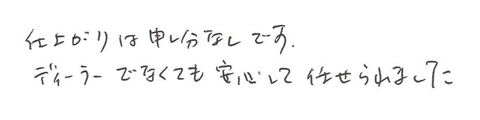 仕上がりは申し分なしです.
ディーラーでなくても安心して任せられました